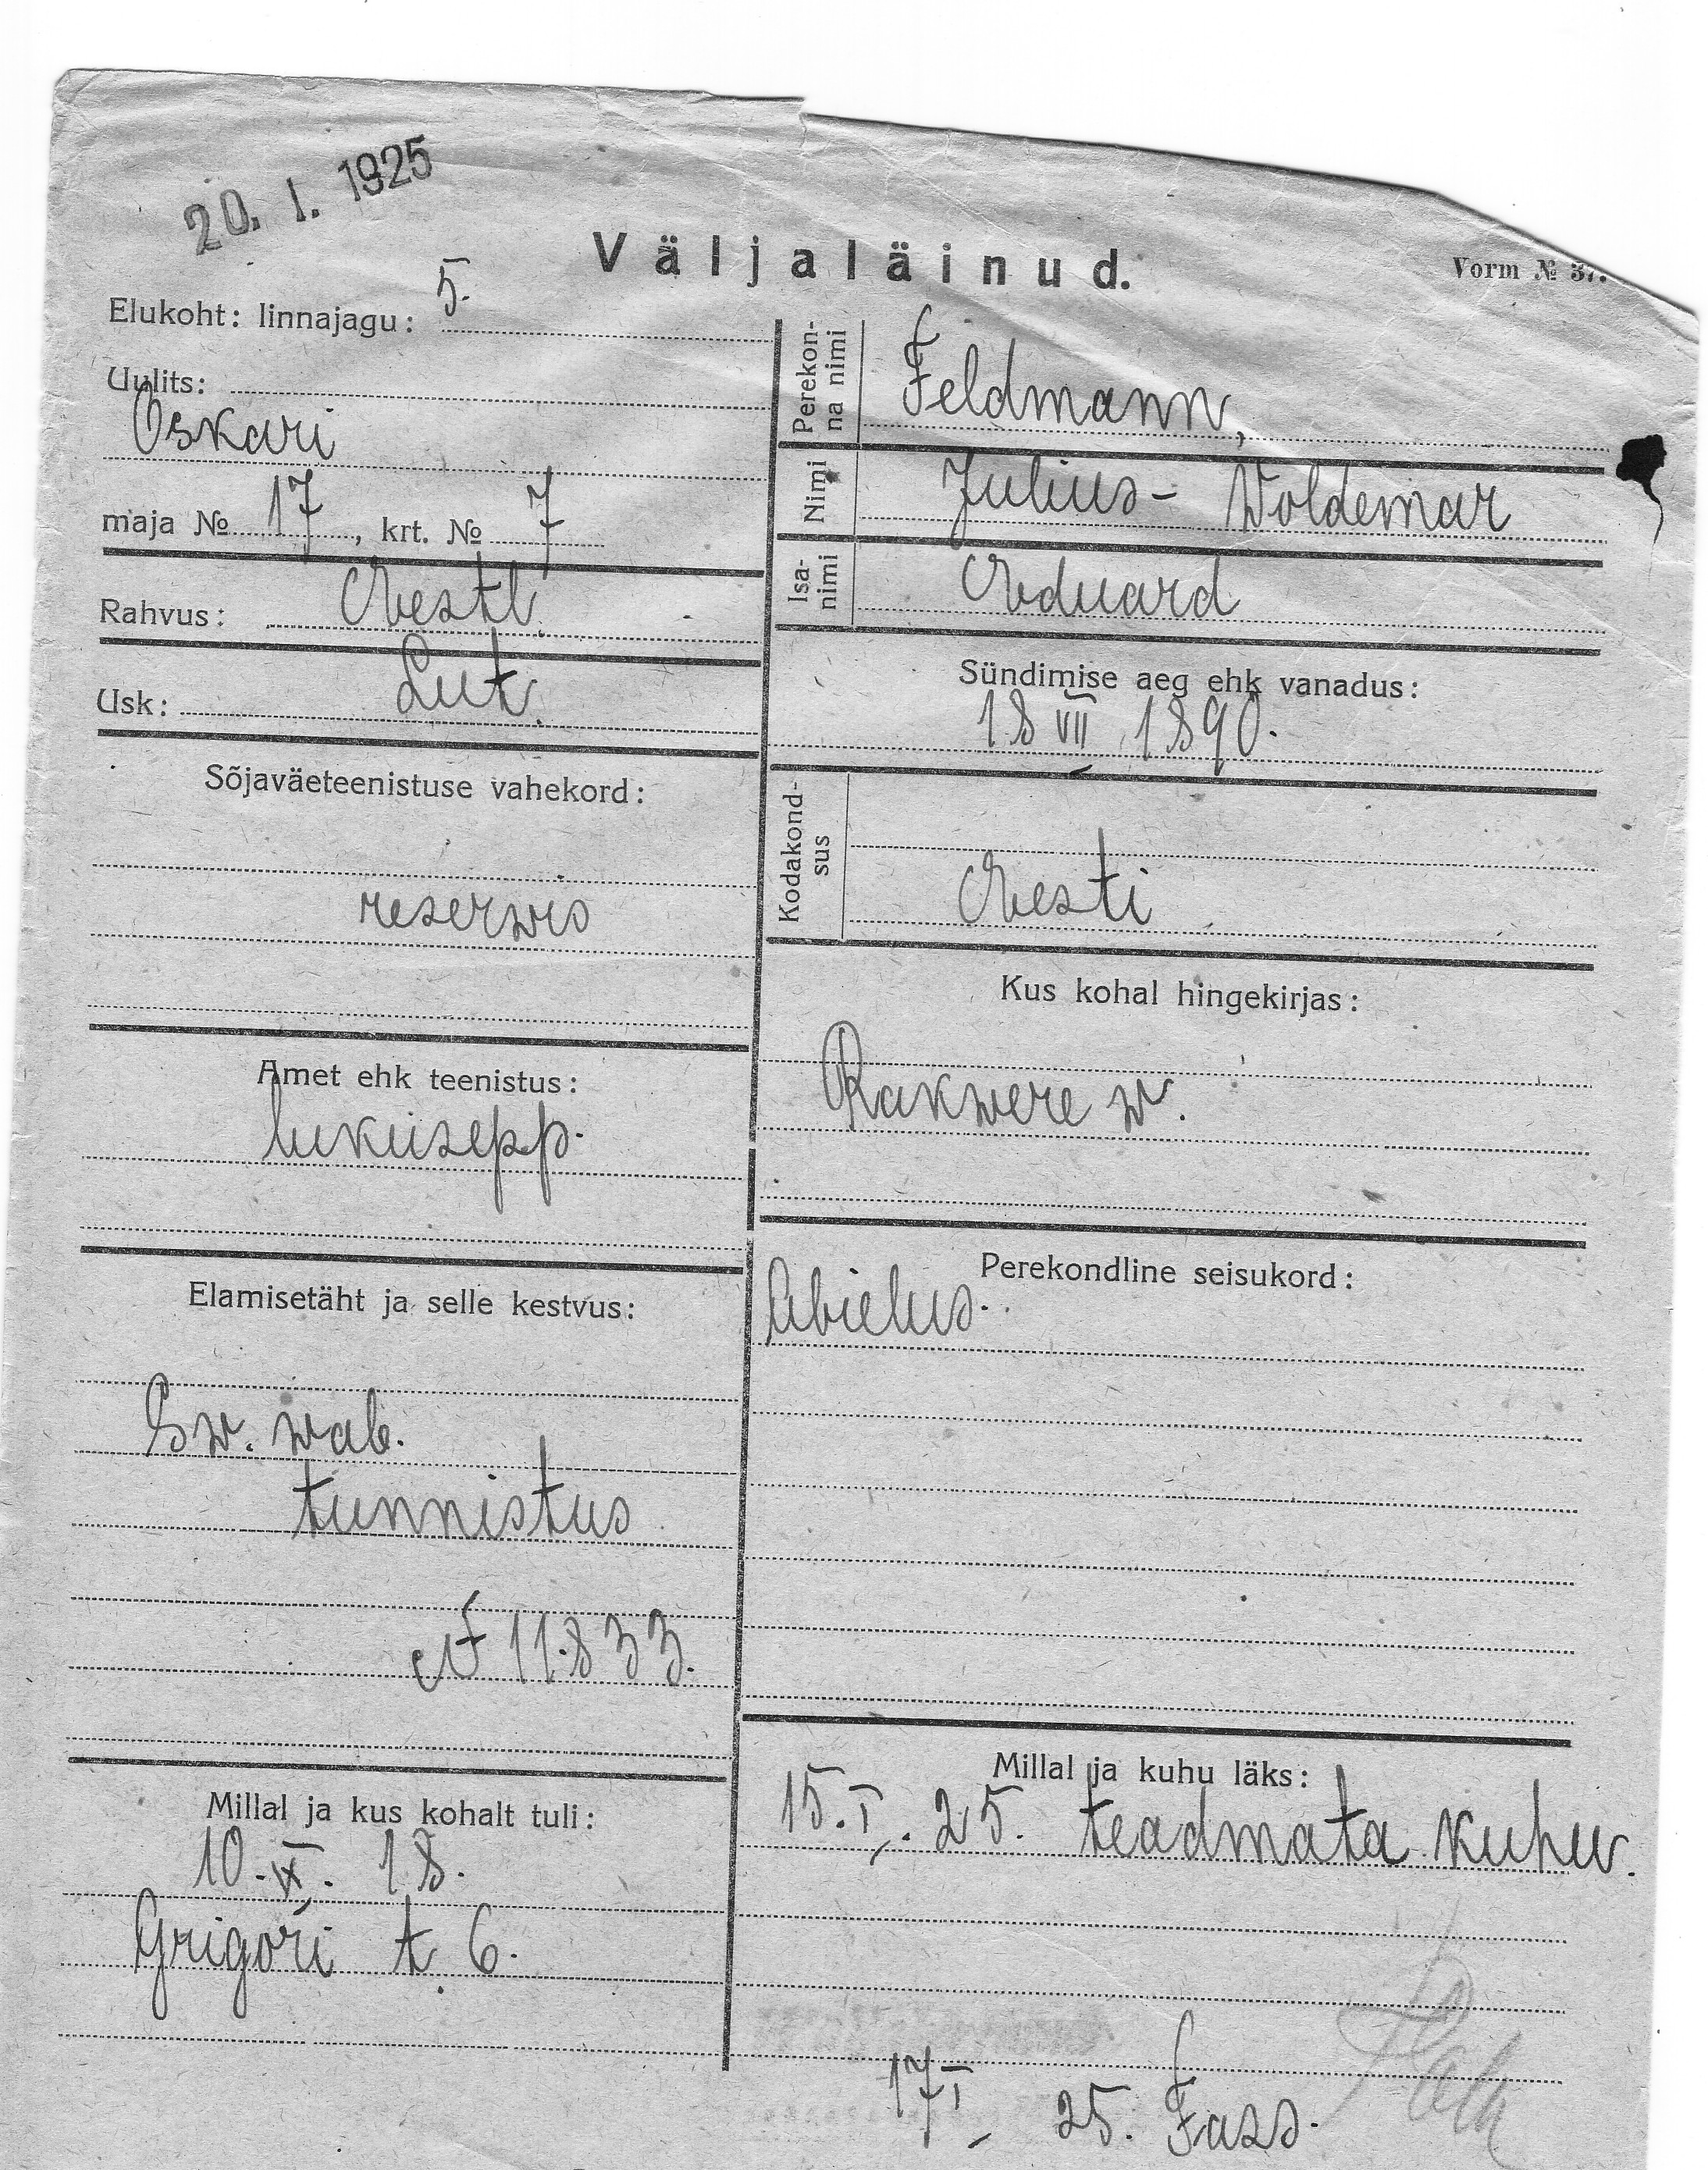 20. I. 1925
Väljaläinud.
Vorm № 37.
Elukoht: linnajagu: 5.
Uulits:
Oskari
maja № 17, krt. № 7
Rahvus: Eestl.
Usk: Lut.
Sõjaväeteenistuse vahekord:
reserwis
Amet ehk teenistus:
lukusepp.
Elamisetäht ja selle kestvus:
Sw. wab.
tunnistus
№ 11.833.
Millal ja kus kohalt tuli:
10. IX. 18.
Grigori t. 6.
Perekonna nimi
Feldmann,
Nimi
Julius- Woldemar
Isanimi
Eduard
Sündimise aeg ehk vanadus:
18 VII 1890.
Kodakondsus
Eesti
Kus kohal hingekirjas:
Rakwere w.
Perekondline seisukord:
Abielus.
Millal ja kuhu läks:
15. I. 25. teadmata kuhu.
17 I 25. Fass.